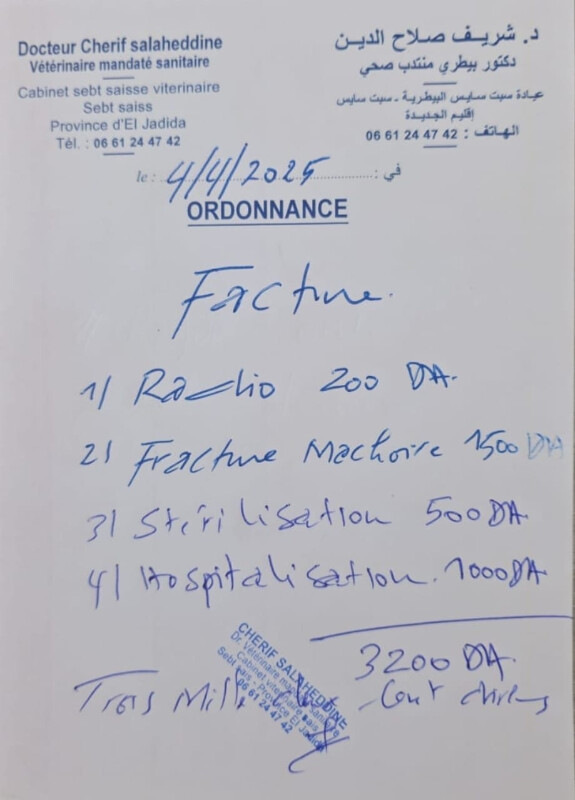 Docteur Cherif salaheddine
Vétérinaire mandaté sanitaire
Cabinet sebt saisse viterinaire
Sebt saiss
Province d'El Jadida
Tél. : 06 61 24 47 42
د. شريف صلاح الدين
دكتور بيطري منتدب صحي
عيادة سبت سايس البيطرية - سبت سايس
إقليم الجديدة
الهاتف : 06 61 24 47 42
le : 4/4/2025 في :
ORDONNANCE
Facture.
1/ Radio 200 DH.
2/ Fracture Machoire 1500 DH
3/ Stérilisation 500 DH.
4/ Hospitalisation. 1000 DH.
3200 DH.
Trois Mille Cent dirhams
CHERIF SALAHEDDINE
Dr. Vétérinaire mandaté Sanitaire
Cabinet viterinaire
Sebt sais - Province El Jadida
06 61 24 47 42